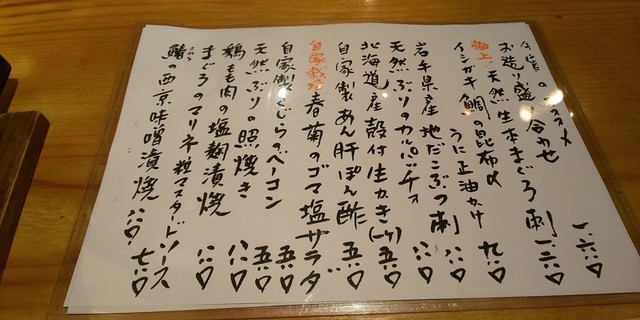 今日のおススメ
お造り盛り合わせ 一、六〇〇
天然生本まぐろ刺 一、二〇〇
極上!イシガキ鯛の昆布〆 九〇〇
うに正油かけ 八〇〇
岩手県産 地だこぶつ刺 八〇〇
天然ぶりのカルパッチョ 八〇〇
北海道産 殻付生かき(一ヶ) 五〇〇
自家製あん肝ぽん酢 五〇〇
自家栽培 春菊のゴマ塩サラダ 五〇〇
自家製くじらのベーコン 五〇〇
天然ぶりの照焼き 八〇〇
鶏もも肉の塩麹漬焼 八〇〇
まぐろのマリネ 粒マスタードソース 七〇〇
鰆の西京味噌漬焼 八〇〇
さわら